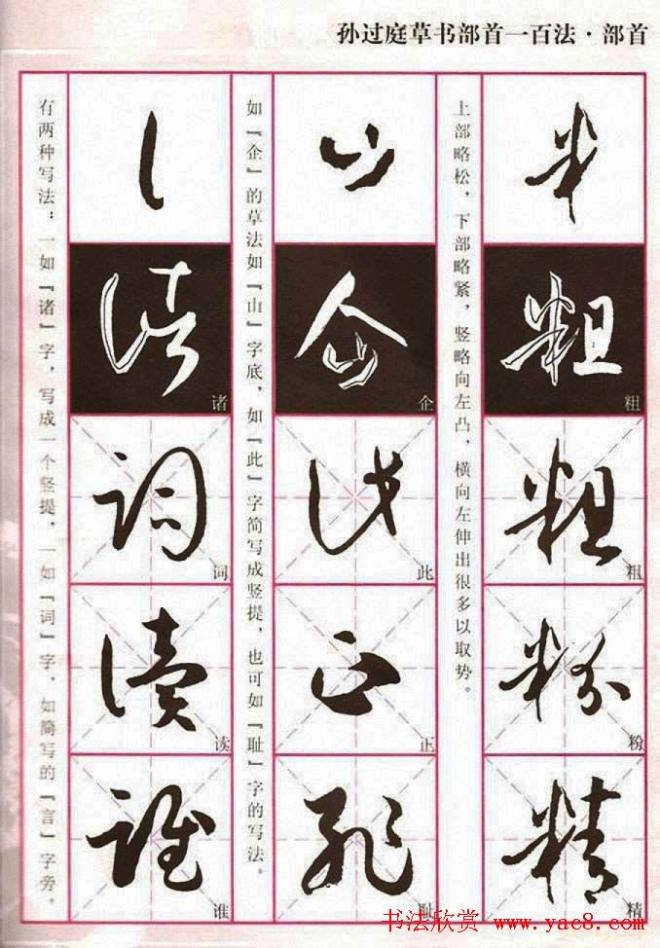 孙过庭草书部首一百法·部首
上部略松，下部略紧，竖略向左凸，横向左伸出很多以取势。
粗
粗
粉
精
如「企」的草法如「山」字底，如「此」字简写成竖提，也可如「耻」字的写法。
企
此
正
耻
有两种写法：一如「诸」字，写成一个竖提，一如「词」字，如简写的「言」字旁。
诸
词
读
谁
书法欣赏 www.yac8.com